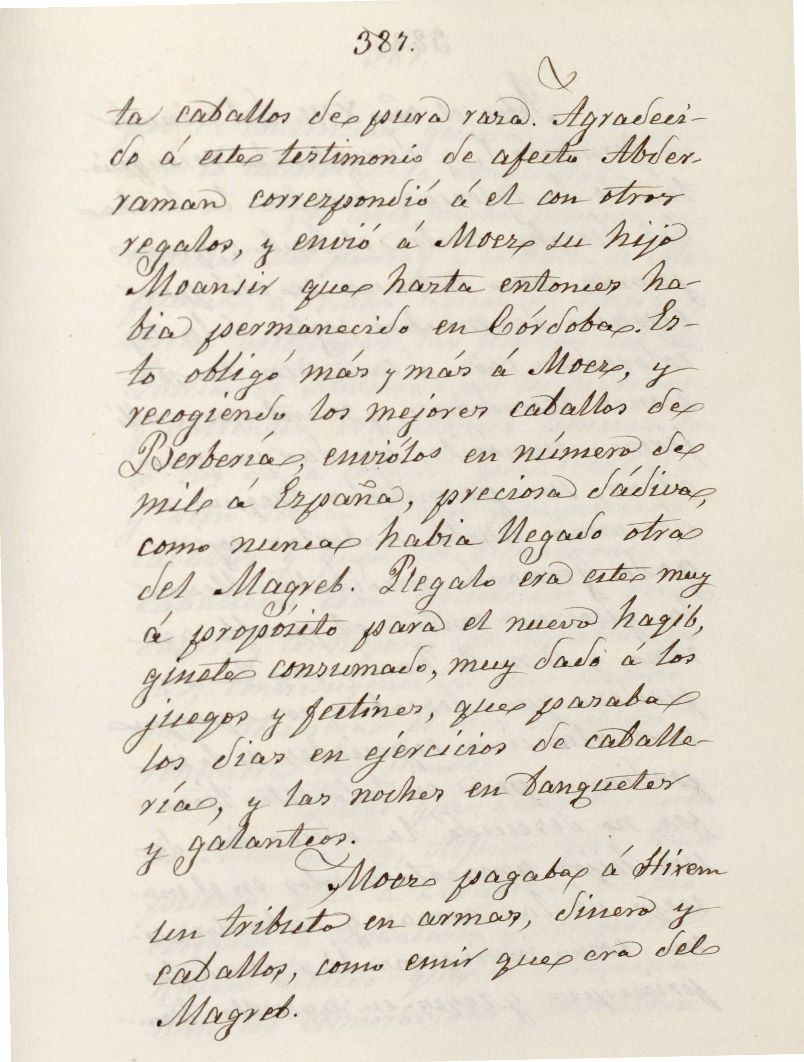 387.
ta caballos de pura raza. Agradeci-
do á este testimonio de afecto Abder-
raman correspondió á el con otros
regalos, y envió á Moez su hijo
Moansir que hasta entonces ha-
bia permanecido en Córdoba. Es-
to obligó más y más á Moez, y
recogiendo los mejores caballos de
Berbería, enviólos en número de
mil á España, preciosa dádiva,
como nunca habia llegado otra
del Magreb. Regalo era este muy
á propósito para el nuevo hagib,
ginete consumado, muy dado á los
juegos y festines, que pasaba
los dias en ejercicios de caballe-
ría, y las noches en banquetes
y galanteos.
Moez pagaba á Hixem
un tributo en armas, dinero y
caballos, como emir que era del
Magreb.